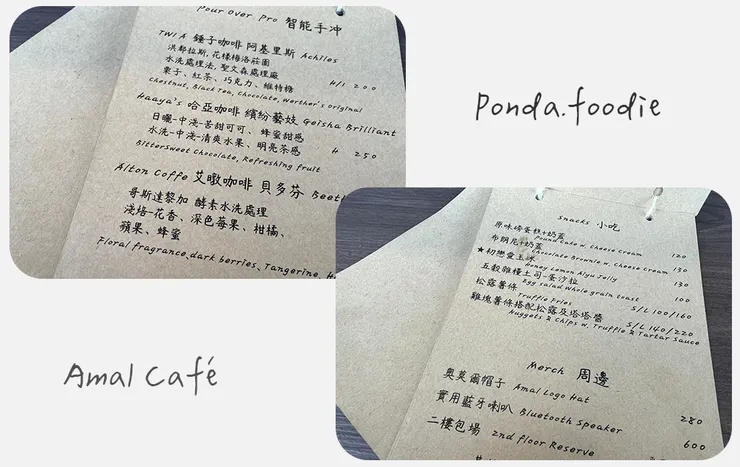 Pour Over Pro 智能手冲
TWI A 錘子咖啡 阿基里斯 Achlles
洪都拉斯, 花樣梅洛莊園
水洗處理法, 聖文森處理廠
栗子、紅茶、巧克力、維特糖 H/I 200
Chestnut, Black Tea, Chocolate, Werther's Original
Haaya's 哈亞咖啡 繽紛藝妓 Geisha Brilliant
日曬-中淺-苦甜可可、蜂蜜甜感
水洗-中淺-清爽水果、明亮茶感 H 250
BitterSweet Chocolate, Refreshing fruit
Alton Coffe 艾暾咖啡 貝多芬
哥斯達黎加 酵素水洗處理
淺焙-花香、深色莓果、柑橘、
蘋果、蜂蜜
Floral fragrance, dark berries, Tangerine,
Ponda.foodie
Snacks 小吃
原味磅蛋糕+奶蓋
Pound Cake w. Cheese Cream 120
布朗尼+奶蓋
Chocolate Brownie w. Cheese Cream 130
★初戀愛玉冰
Honey Lemon Aiyu Jelly 130
五穀雜糧土司-蛋沙拉
Egg salad Whole grain toast 100
松露薯條
Truffle Fries S/L 100/160
雞塊薯條搭配松露及塔塔醬 S/L 140/220
Nuggets & Chips w. Truffle & Tartar Sauce
Merch 周邊
奧莫爾帽子 Amal Logo Hat 280
實用藍牙喇叭 Bluetooth Speaker 600
二樓包場 2nd floor Reserve
Amal Café